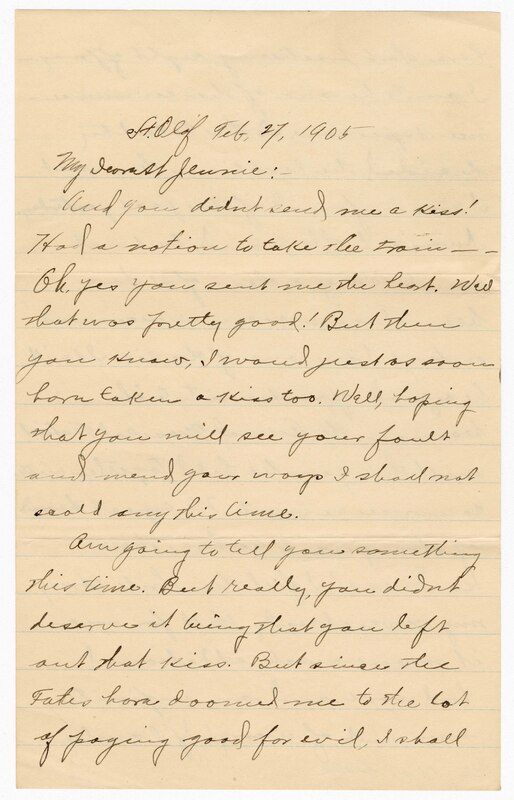 St. Olaf Feb. 27, 1905
My dearest Jennie:-
And you didn't send me a kiss!
Had a notion to take the train —
Oh, yes you sent me the best. Well
that was pretty good! But then
you know, I would just as soon
have taken a kiss too. Well, hoping
that you will see your fault
and mend your ways I shall not
scold any this time.
Am going to tell you something
this time. But really, you didn't
deserve it being that you left
out that kiss. But since the
Fates have doomed me to the lot
of paying good for evil, I shall